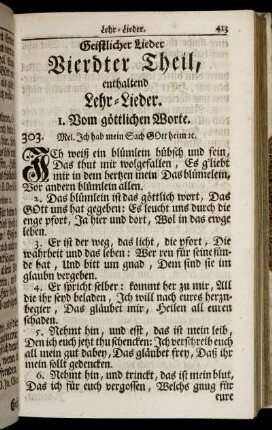 Lehr-Lieder. 413
Geistlicher Lieder
Vierdter Theil,
enthaltend
Lehr-Lieder.
1. Vom göttlichen Worte.
303. Mel. Ich hab mein Sach GOtt heim ꝛc.
ICh weiß ein blümlein hübsch und fein,
Das thut mir wolgefallen, Es g'liebt
mir in dem hertzen mein Das blümelein,
Vor andern blümlein allen.
2. Das blümlein ist das göttlich wort, Das
GOtt uns hat gegeben: Es leucht uns durch die
enge pfort, Ja hier und dort, Wol in das ewge
leben.
3. Er ist der weg, das licht, die pfort, Die
wahrheit und das leben: Wer reu für seine sün-
de hat, Und bitt um gnad, Dem sind sie im
glaubn vergeben.
4. Er spricht selber: kommt her zu mir, All
die ihr seyd beladen, Ich will nach eures herzn-
begier, Das gläubet mir, Heilen all euren
schaden.
5. Nehmt hin, und esst, das ist mein leib,
Den ich euch jetzt thu schencken: Ich verschreib euch
all mein gut dabey, Das gläubet frey, Daß ihr
mein sollt gedencken.
6. Nehmt hin, und trinckt, das ist mein blut,
Das ich für euch vergossen, Welchs gnug für
eure